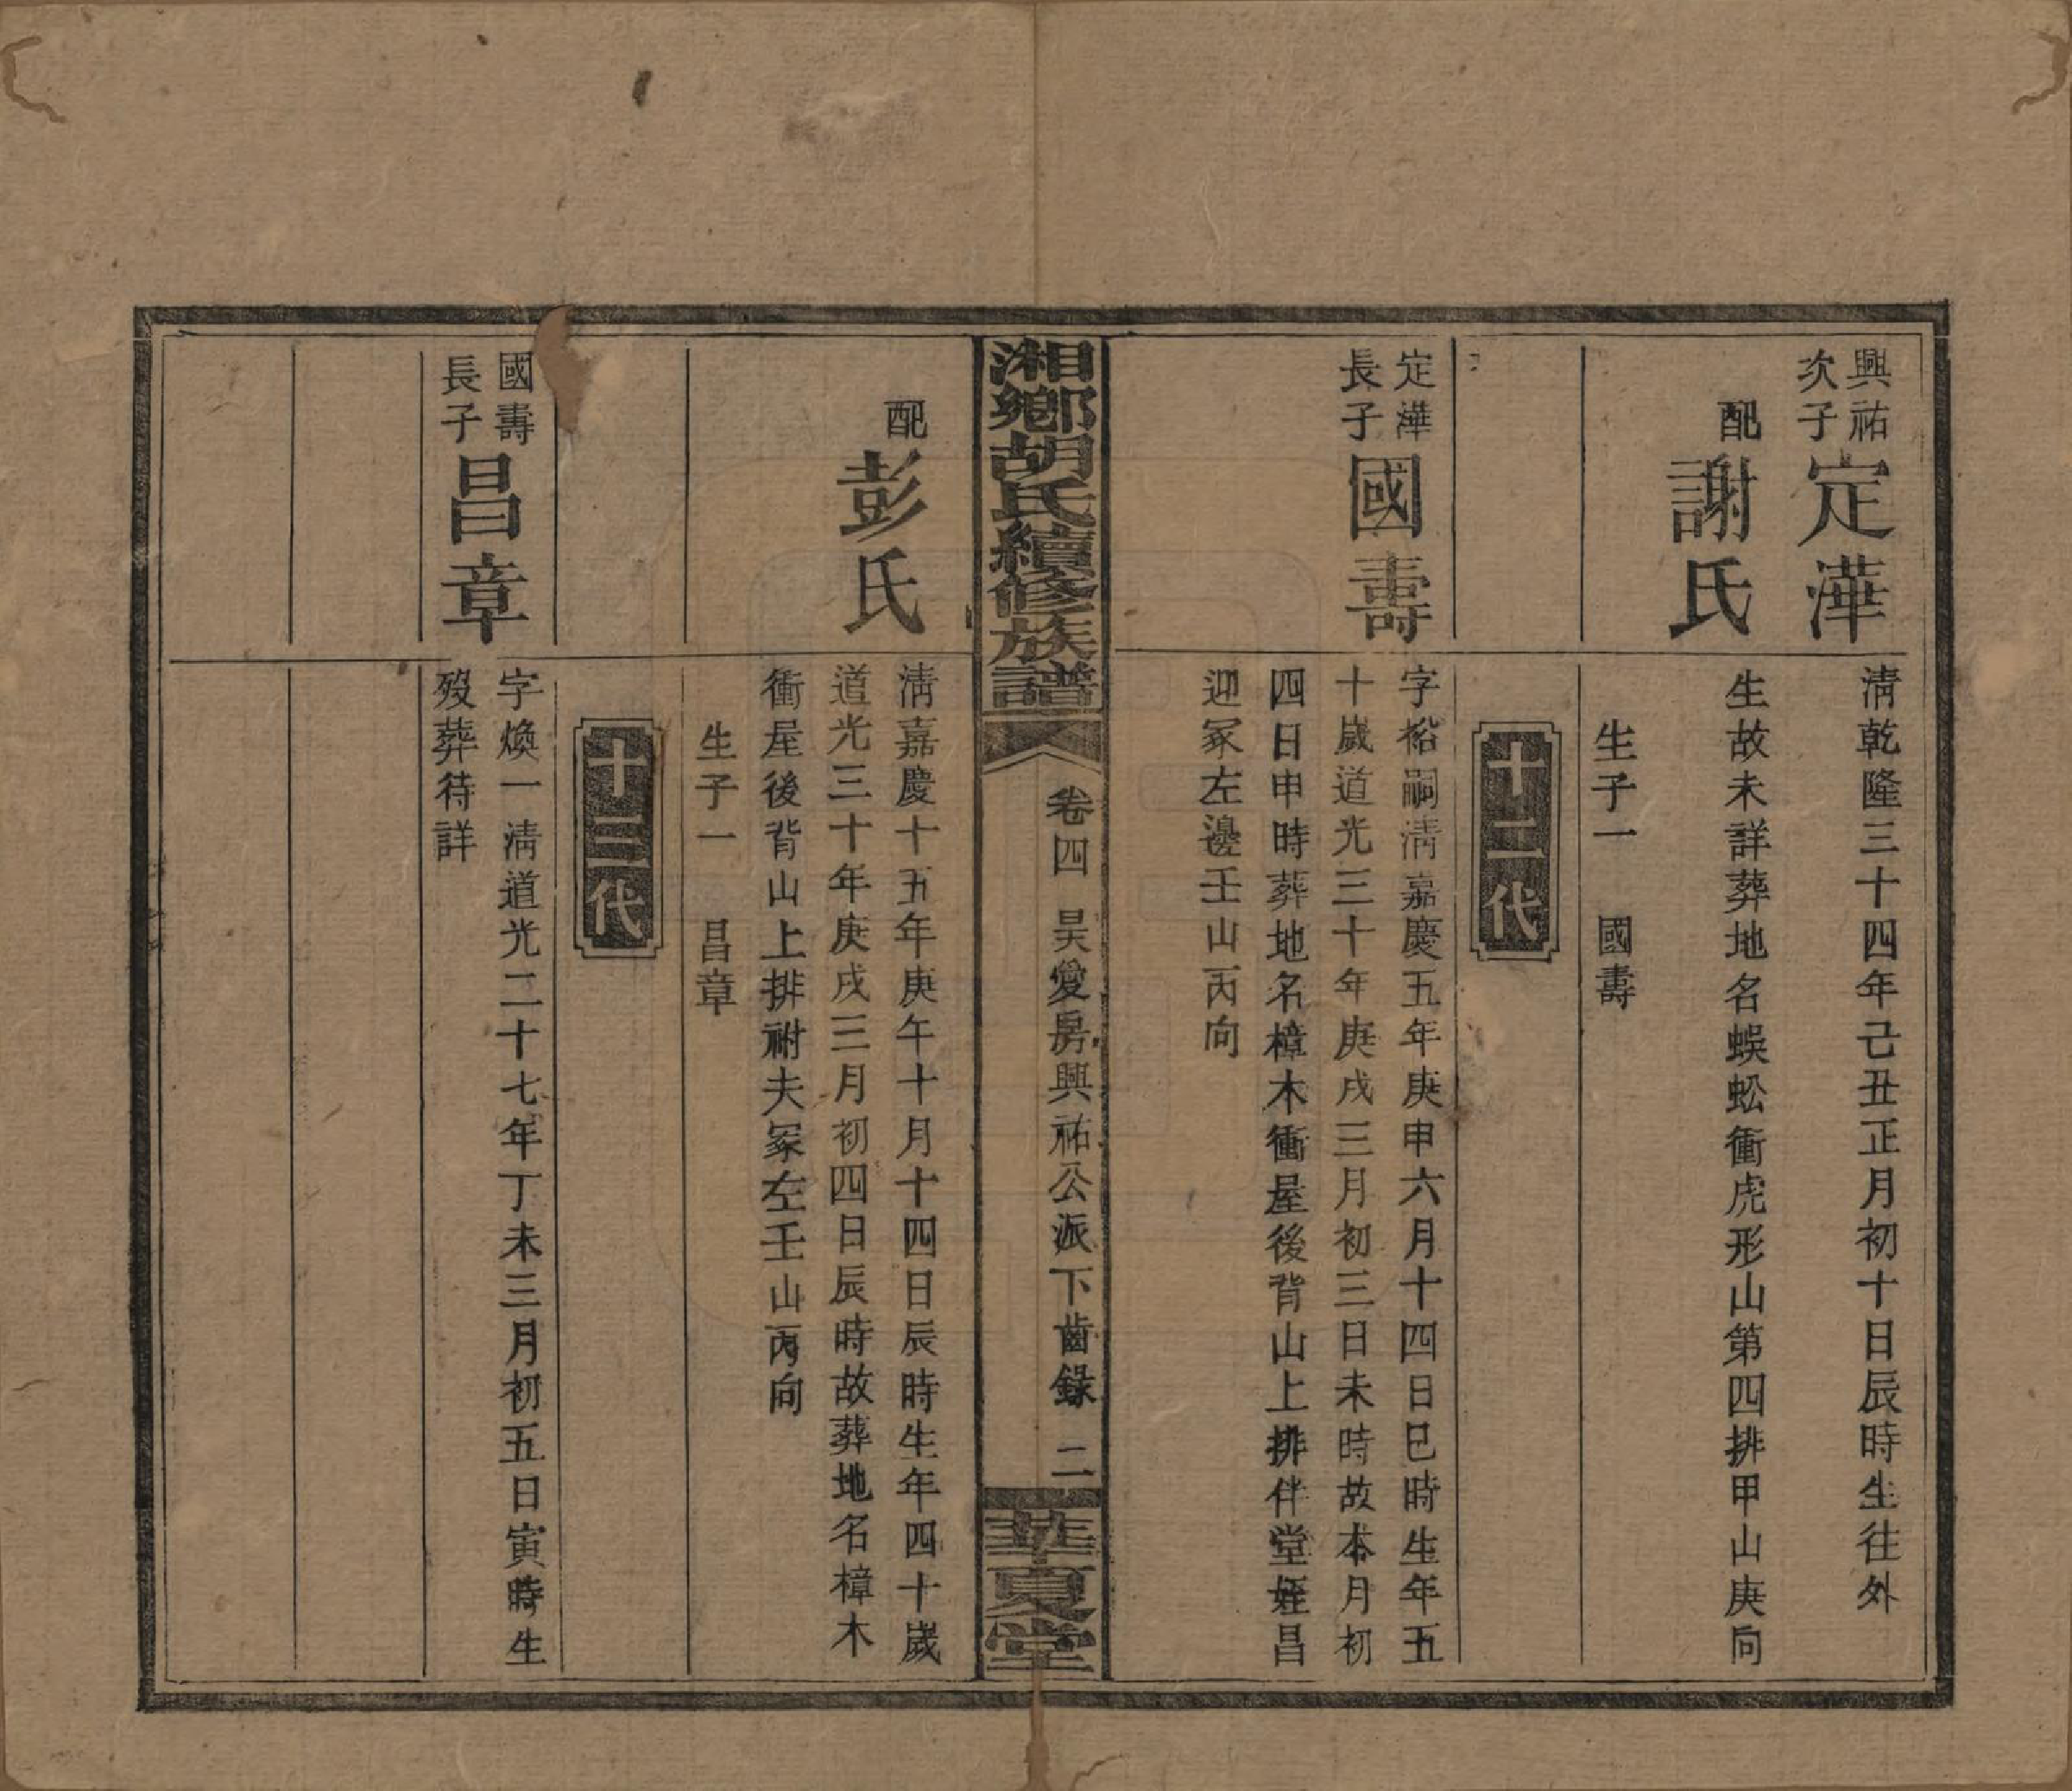 興祐
次子
定澕
清乾隆三十四年己丑正月初十日辰時生往外
配
謝氏
生故未詳葬地名蜈蚣衝虎形山第四排甲山庚向
生子一　國壽
十二代
定澕
長子
國壽
字裕嗣清嘉慶五年庚申六月十四日巳時生年五
十歲道光三十年庚戌三月初三日未時故本月初
四日申時葬地名樟木衝屋後背山上排伴堂姪昌
迎冢左邊壬山丙向
湘鄉胡氏續修族譜
卷四　昊愛房興祐公派下齒錄　二
華夏堂
配
彭氏
清嘉慶十五年庚午十月十四日辰時生年四十歲
道光三十年庚戌三月初四日辰時故葬地名樟木
衝屋後背山上排祔夫冢左壬山丙向
生子一　昌章
十三代
國壽
長子
昌章
字煥一清道光二十七年丁未三月初五日寅時生
歿葬待詳